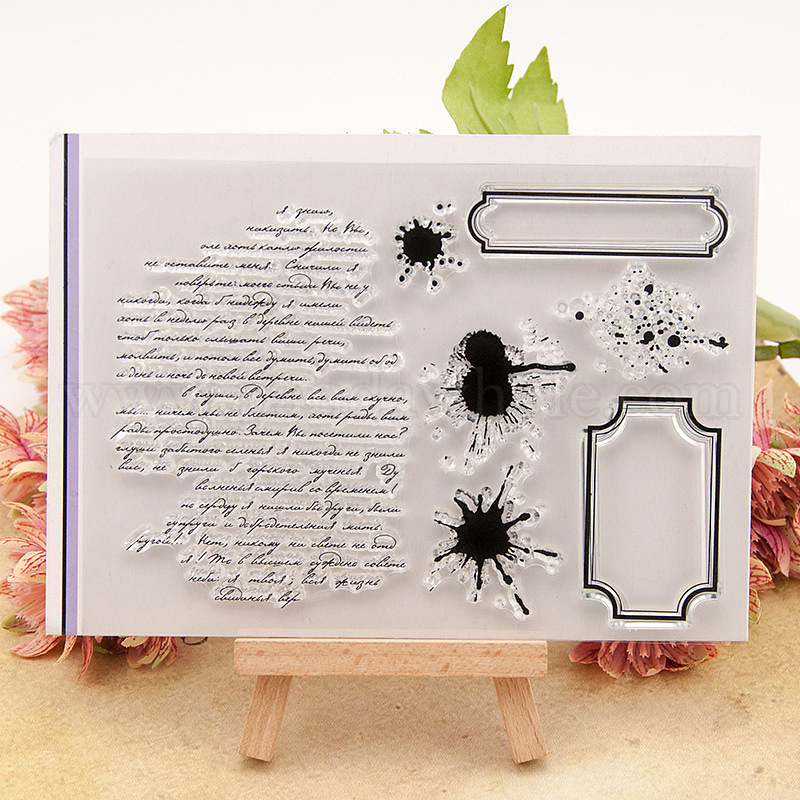 Я знаю,
никидите. Но Вы,
оле хоть каплю жалости
не оставите меня. Сначала я
поверьте: моего стыда Вы не у
никогда, когда б надежду я имела
хоть в неделю раз в деревне нашей видеть
чтоб только слышать ваши речи,
молвить, и потом все думать, думать об од
и день и ночь до новой встречи.
в глуши, в деревне все вам скучно,
мы... ничем мы не блестим, хоть рады вам
рады простодушно. Зачем Вы посетили нас?
глуши забытого селенья я никогда не знали
вас, не знали б горького мученья. Ду
волненья смирив со временем!
по сердцу я нашли бы друга, были
супруги и добродетельная мать.
ругой!.. Нет, никому на свете не отд
я! То в вышнем суждено совете
неба: я твоя; вся жизнь
свиданья вер